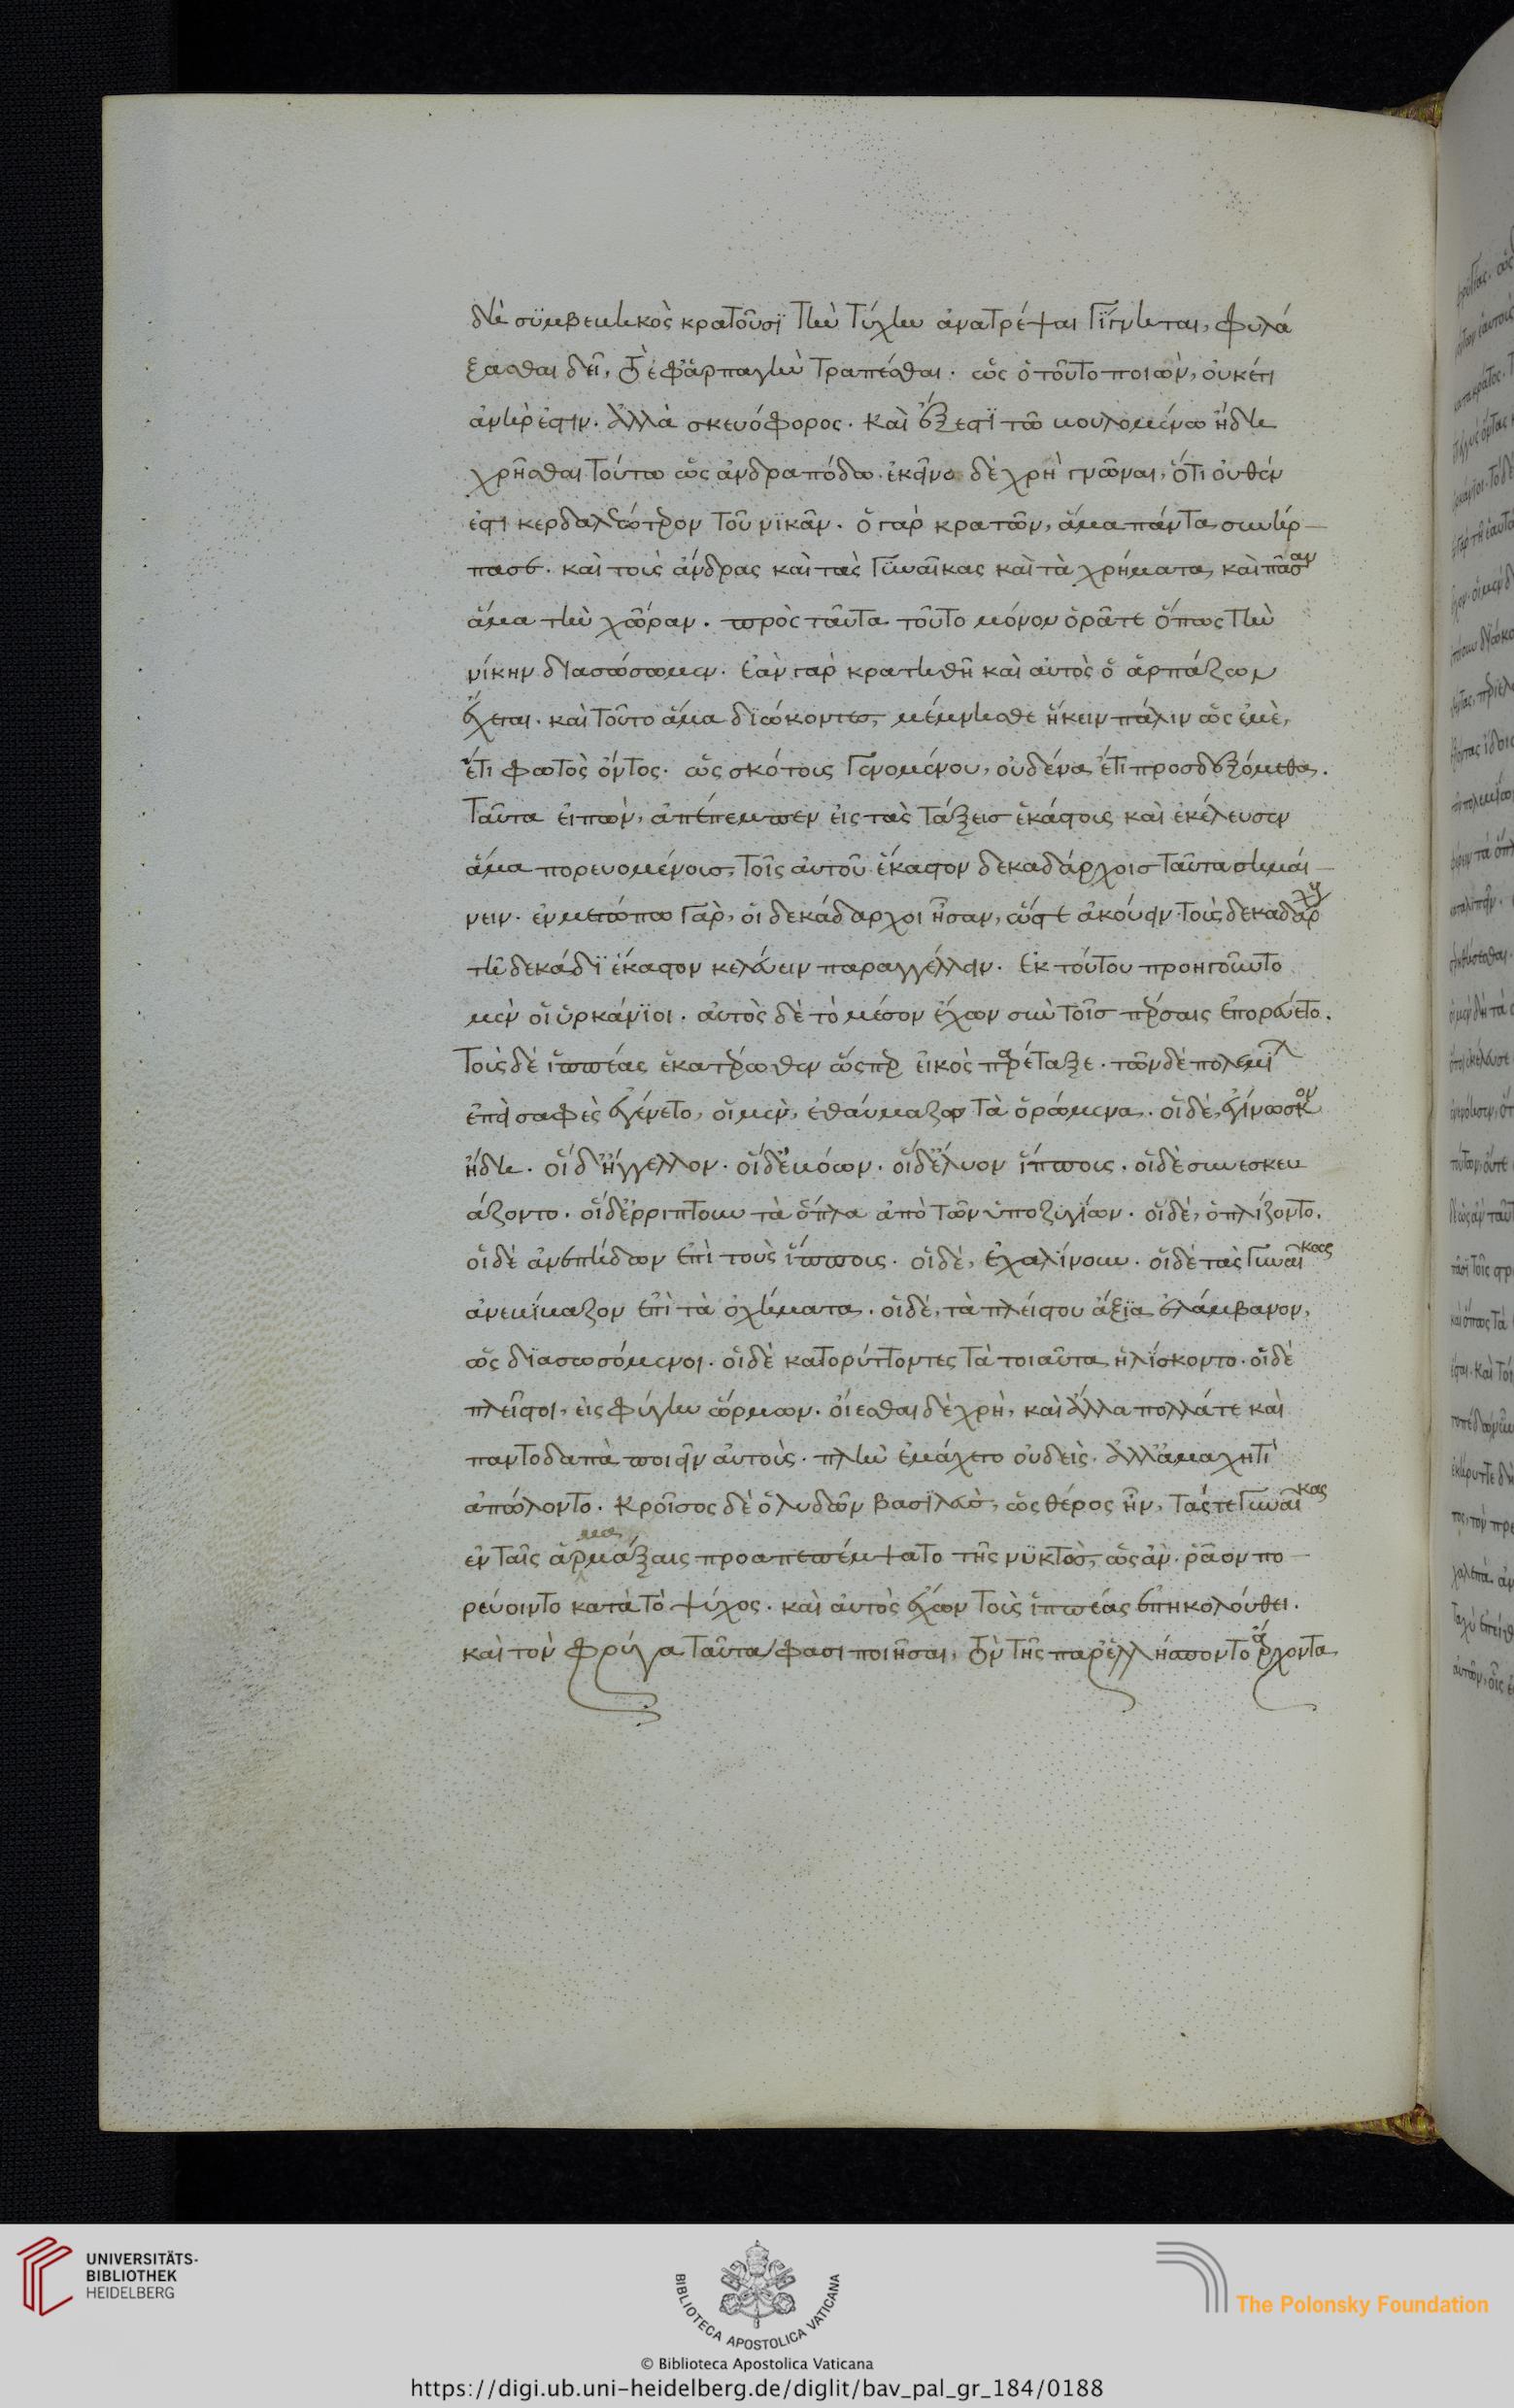 δὴ συμβεβηκὸς κρατοῦσϊ τὴν τύχην ἀνατρέψαι γίγνηται, φυλά
ξασθαι δεῖ, τὸ ἐφ' ἁρπαγὴν τραπέσθαι. ὡς ὁ τοῦτο ποιῶν, οὐκέτι
ἀνὴρ ἐστιν. ἀλλὰ σκευόφορος. καὶ ἔξεστϊ τῶ βουλομένω ἤδη
χρῆσθαι τούτω ὡς ἀνδραπόδω. ἐκεῖνο δὲ χρὴ γνῶναι, ὅτι οὐθέν
ἐστι κερδαλεώτερον τοῦ νϊκᾶν. ὁ γὰρ κρατῶν, ἅμα πάντα συνήρ
πασε. καὶ τοὺς ἄνδρας καὶ τὰς γϋναῖκας καὶ τὰ χρήματα, καὶ πᾶσαν
ἅμα τὴν χῶραν. πρὸς ταῦτα τοῦτο μόνον ὁρᾶτε ὅπως τὴν
νίκην διασώσωμεν. ἐὰν γὰρ κρατηθῆ καὶ αὐτὸς ὁ ἁρπάζων
ἔχεται. καὶ τοῦτο ἅμα διώκοντες, μέμνησθε ἥκειν πάλιν ὡς ἐμὲ,
ἔτι φωτὸς ὄντος. ὡς σκότους γενομένου, οὐδένα ἔτι προσδεξόμεθα.
Ταῦτα εἰπὼν, ἀπέπεμπεν εἰς τὰς τάξεις ἑκάστους καὶ ἐκέλευσεν
ἅμα πορευομένους, τοῖς αὐτοῦ ἕκαστον δεκαδάρχοις ταῦτα σημαί
νειν. ἐν μετώπω γὰρ, οἱ δεκάδαρχοι ἦσαν, ὥστε ἀκούειν. τοὺς δεκαδάρχους
τῆ δεκάδϊ ἕκαστον κελεύειν παραγγέλλειν. Ἐκ τούτου προηγοῦντο
μὲν οἱ ὑρκάνϊοι. αὐτὸς δὲ τὸ μέσον ἔχων σὺν τοῖς πέρσαις ἐπορεύετο.
Τοὺς δὲ ἱππέας ἑκατέρωθεν ὥσπερ εἰκὸς παρέταξε. τῶν δὲ πολεμίων
ἐπεὶ σαφὲς ἐγένετο, οἱ μὲν, ἐθαύμαζον τὰ ὁρώμενα. οἱ δὲ, ἐγίνωσκον
ἤδη. οἱ δ' ἤγγελλον. οἱ δ' ἐβόων. οἱ δ' ἔλυον ἵππους. οἱ δὲ συνεσκευ
άζοντο. οἱ δ' ἐρρίπτουν τὰ ὅπλα ἀπὸ τῶν ὑποζυγίων. οἱ δὲ, ὁπλίζοντο.
οἱ δὲ ἀνεπήδων ἐπὶ τοὺς ἵππους. οἱ δὲ, ἐχαλίνουν. οἱ δὲ τὰς γυναῖκας
ἀνεβίβαζον ἐπὶ τὰ ὀχήματα. οἱ δὲ, τὰ πλείστου ἄξϊα ἐλάμβανον,
ὡς διασωσόμενοι. οἱ δὲ κατορύττοντες τὰ τοιαῦτα ἡλίσκοντο. οἱ δὲ
πλεῖστοι, εἰς φύγην ὥρμων. οἴεσθαι δὲ χρὴ, καὶ ἄλλα πολλά τε καὶ
παντοδαπὰ ποιεῖν αὐτοὺς. πλὴν ἐμάχετο οὐδεὶς. ἀλλ' ἀμαχητὶ
ἀπώλοντο. Κροῖσος δὲ ὁ λυδῶν βασϊλεὺς, ὡς θέρος ἦν, τάς τε γυναῖκας
ἐν ταῖς ἁρμαμάξαις προαπεπέμψατο τῆς νϋκτὸς, ὡς ἂν ῥᾶον πο
ρεύοιντο κατὰ τὸ ψύχος. καὶ αὐτὸς ἔχων τοὺς ἱππέας ἐπηκολούθει.
καὶ τὸν φρύγα ταῦτα φασι ποιῆσαι, τὸν τῆς παρ' ἑλλήσποντον ἄρχοντα
UNIVERSITÄTS-
BIBLIOTHEK
HEIDELBERG
BIBLIOTECA APOSTOLICA VATICANA
The Polonsky Foundation
© Biblioteca Apostolica Vaticana
https://digi.ub.uni-heidelberg.de/diglit/bav_pal_gr_184/0188